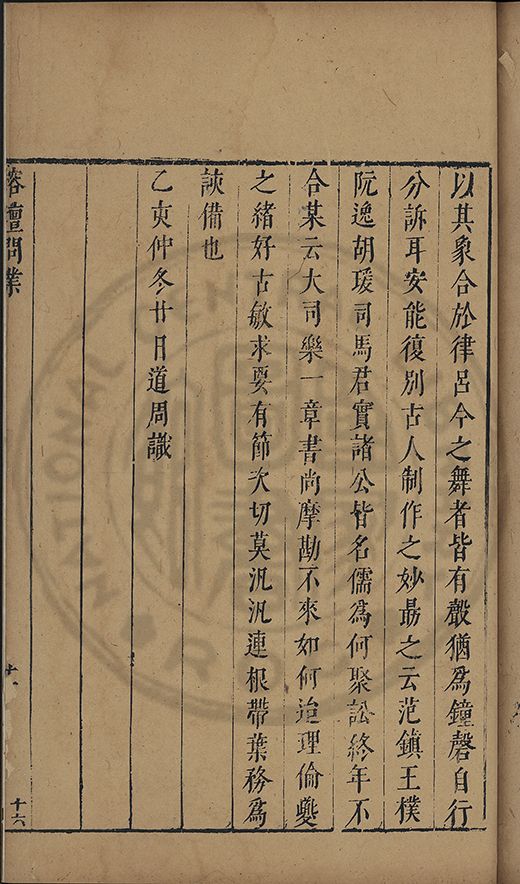 以其象合於律呂今之舞者皆有聲猶為鐘磬自行
分訴耳安能復別古人制作之妙最之云范鎮王樸
阮逸胡瑗司馬君實諸公皆名儒為何聚訟終年不
合某云大司樂一章書尚摩勘不來如何追理倫夔
之緒好古敏求要有節次切莫汎汎連根帶葉務為
該備也
乙亥仲冬廿日道周識
榕壇問業
十六